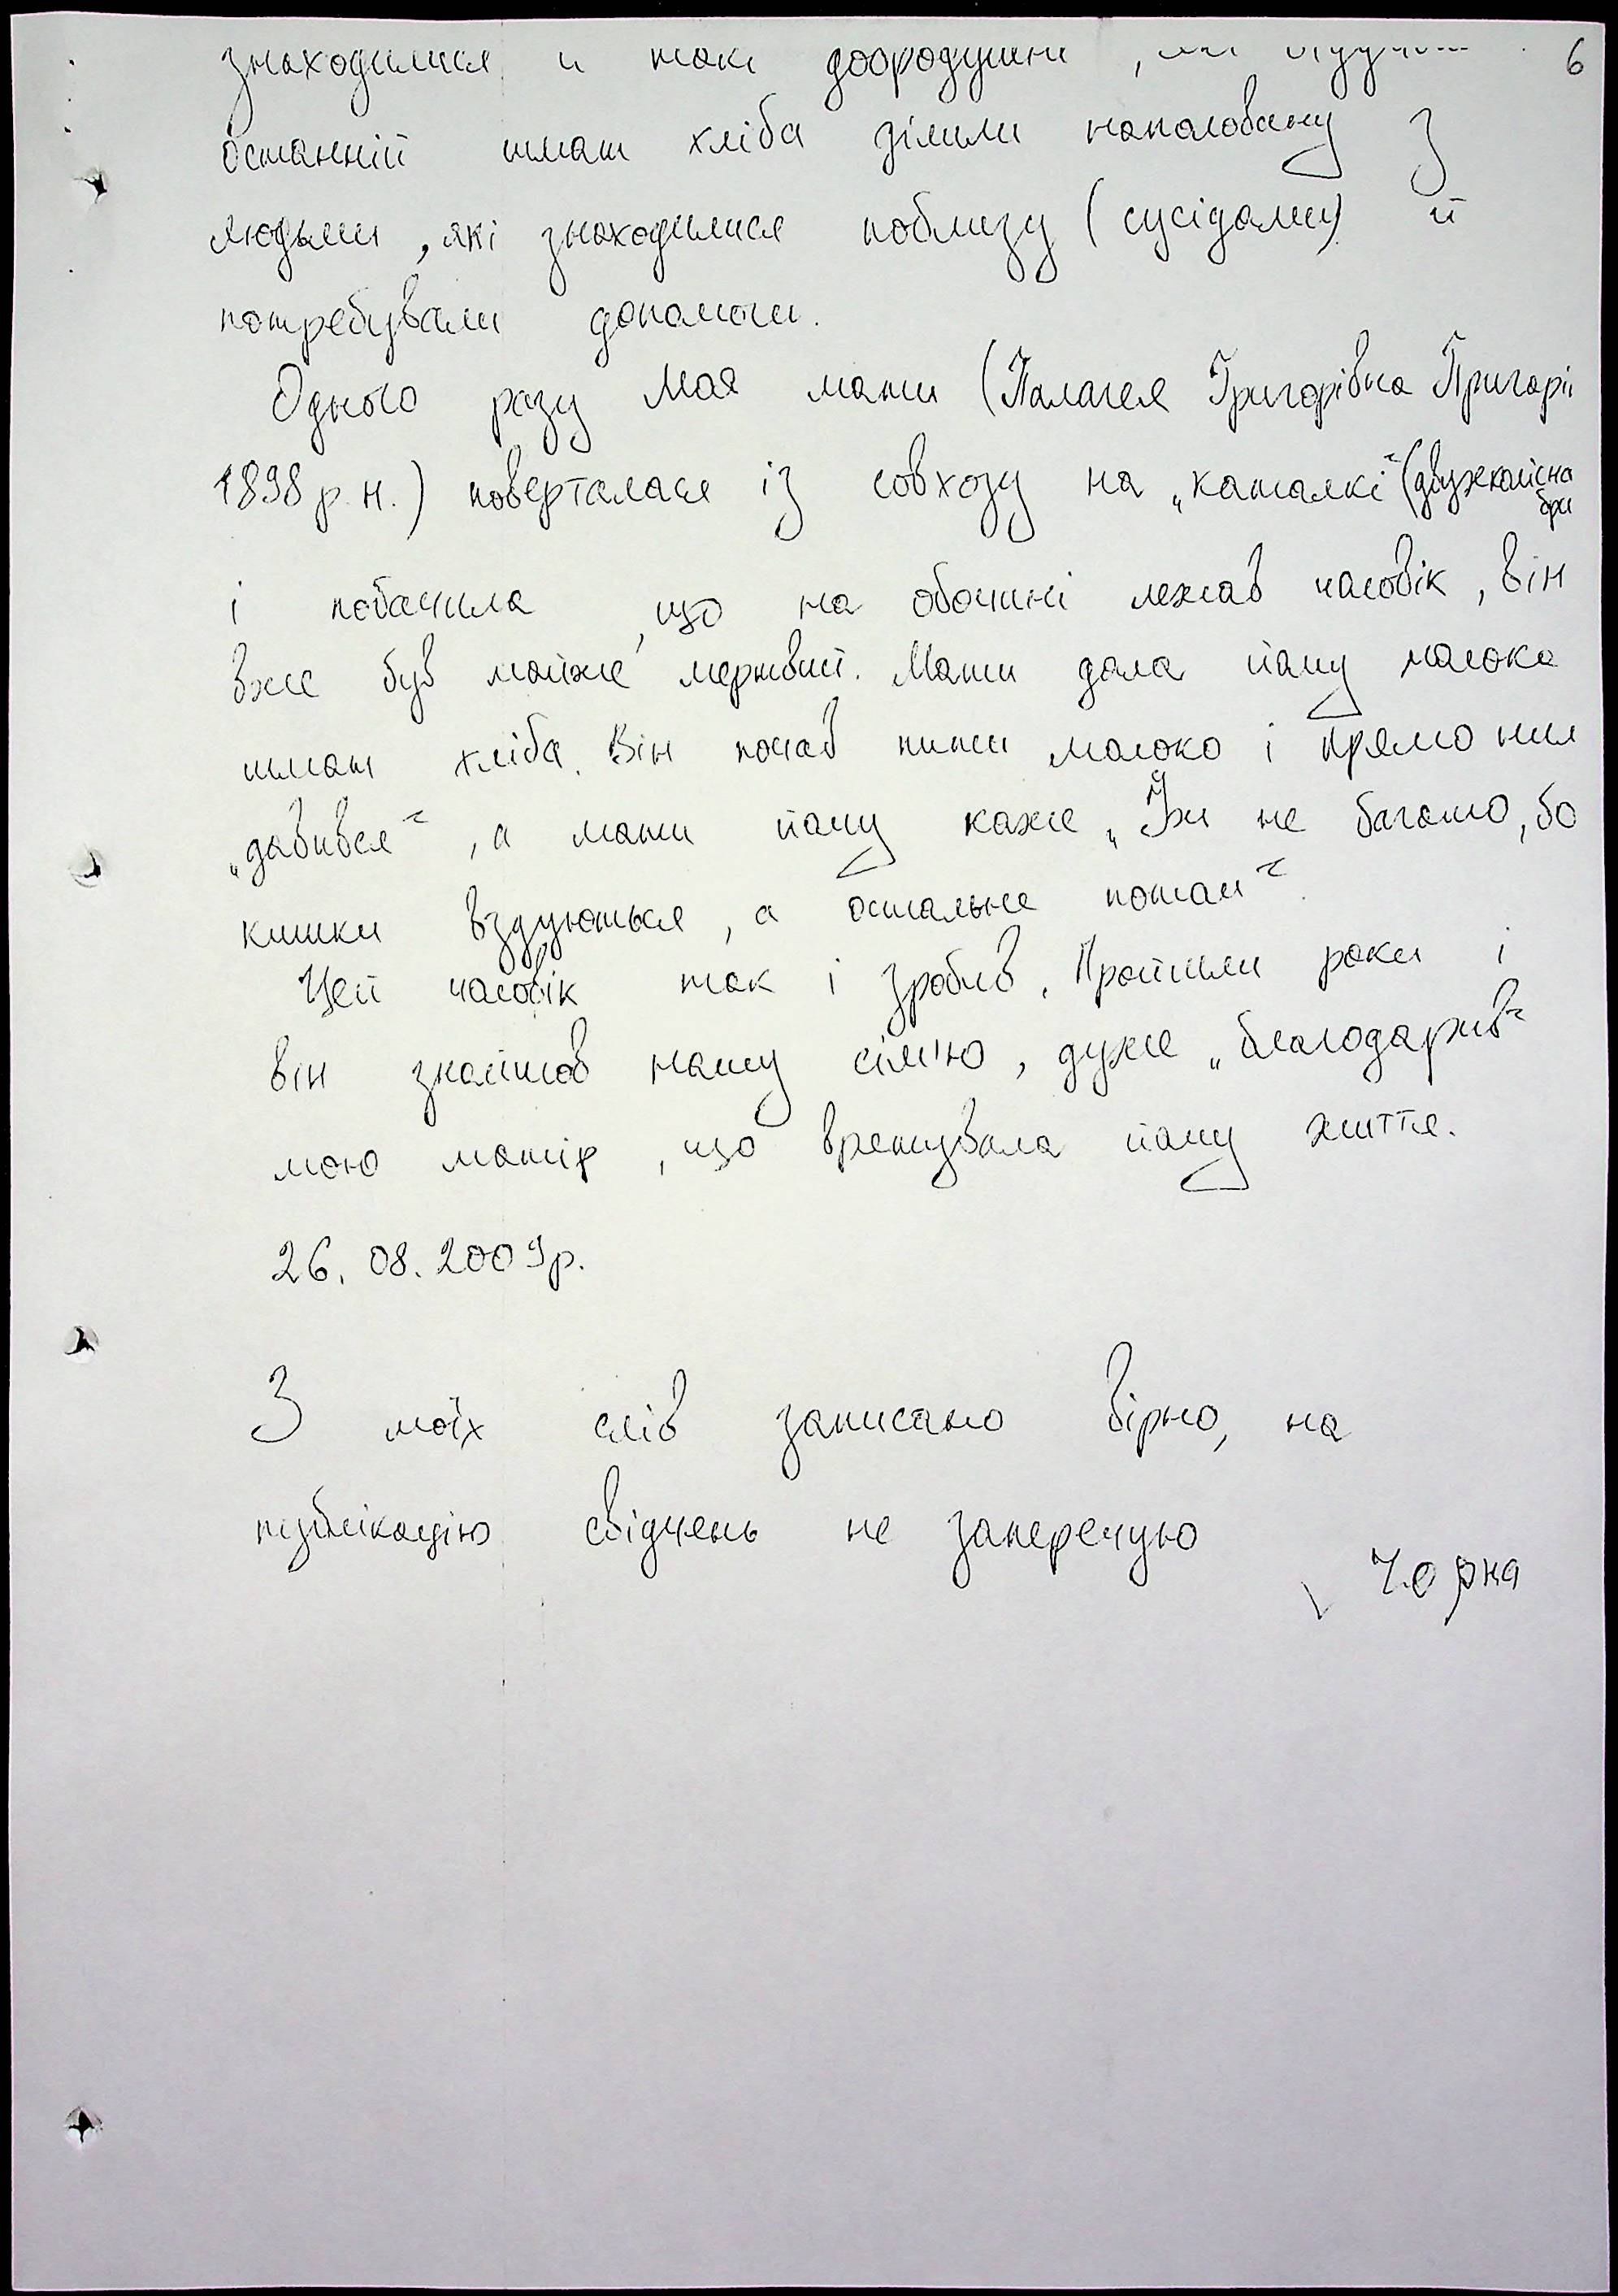 6
знаходилися й такі добродушні, які
останній шмат хліба ділили наполовину з
людьми, які знаходилися поблизу (сусідами) й
потребували допомоги.
Одного разу моя мати (Палагея Григорівна Пригарі
1898 р.н.) поверталася із совхозу на „каталкі“ (двухколісна
бри
і побачила, що на обочині лежав чоловік, він
вже був майже мертвий. Мати дала йому молока
шмат хліба. Він почав пити молоко і прямо ним
„давився“, а мати йому каже „Їж не багато, бо
кишки вздуються, а остальне потом“.
Цей чоловік так і зробив. Пройшли роки і
він знайшов нашу сім'ю, дуже „благодарив“
мою матір, що врятувала йому життя.
26.08.2009р.
З моїх слів записано вірно, на
публікацію свідчень не заперечую
Чорна